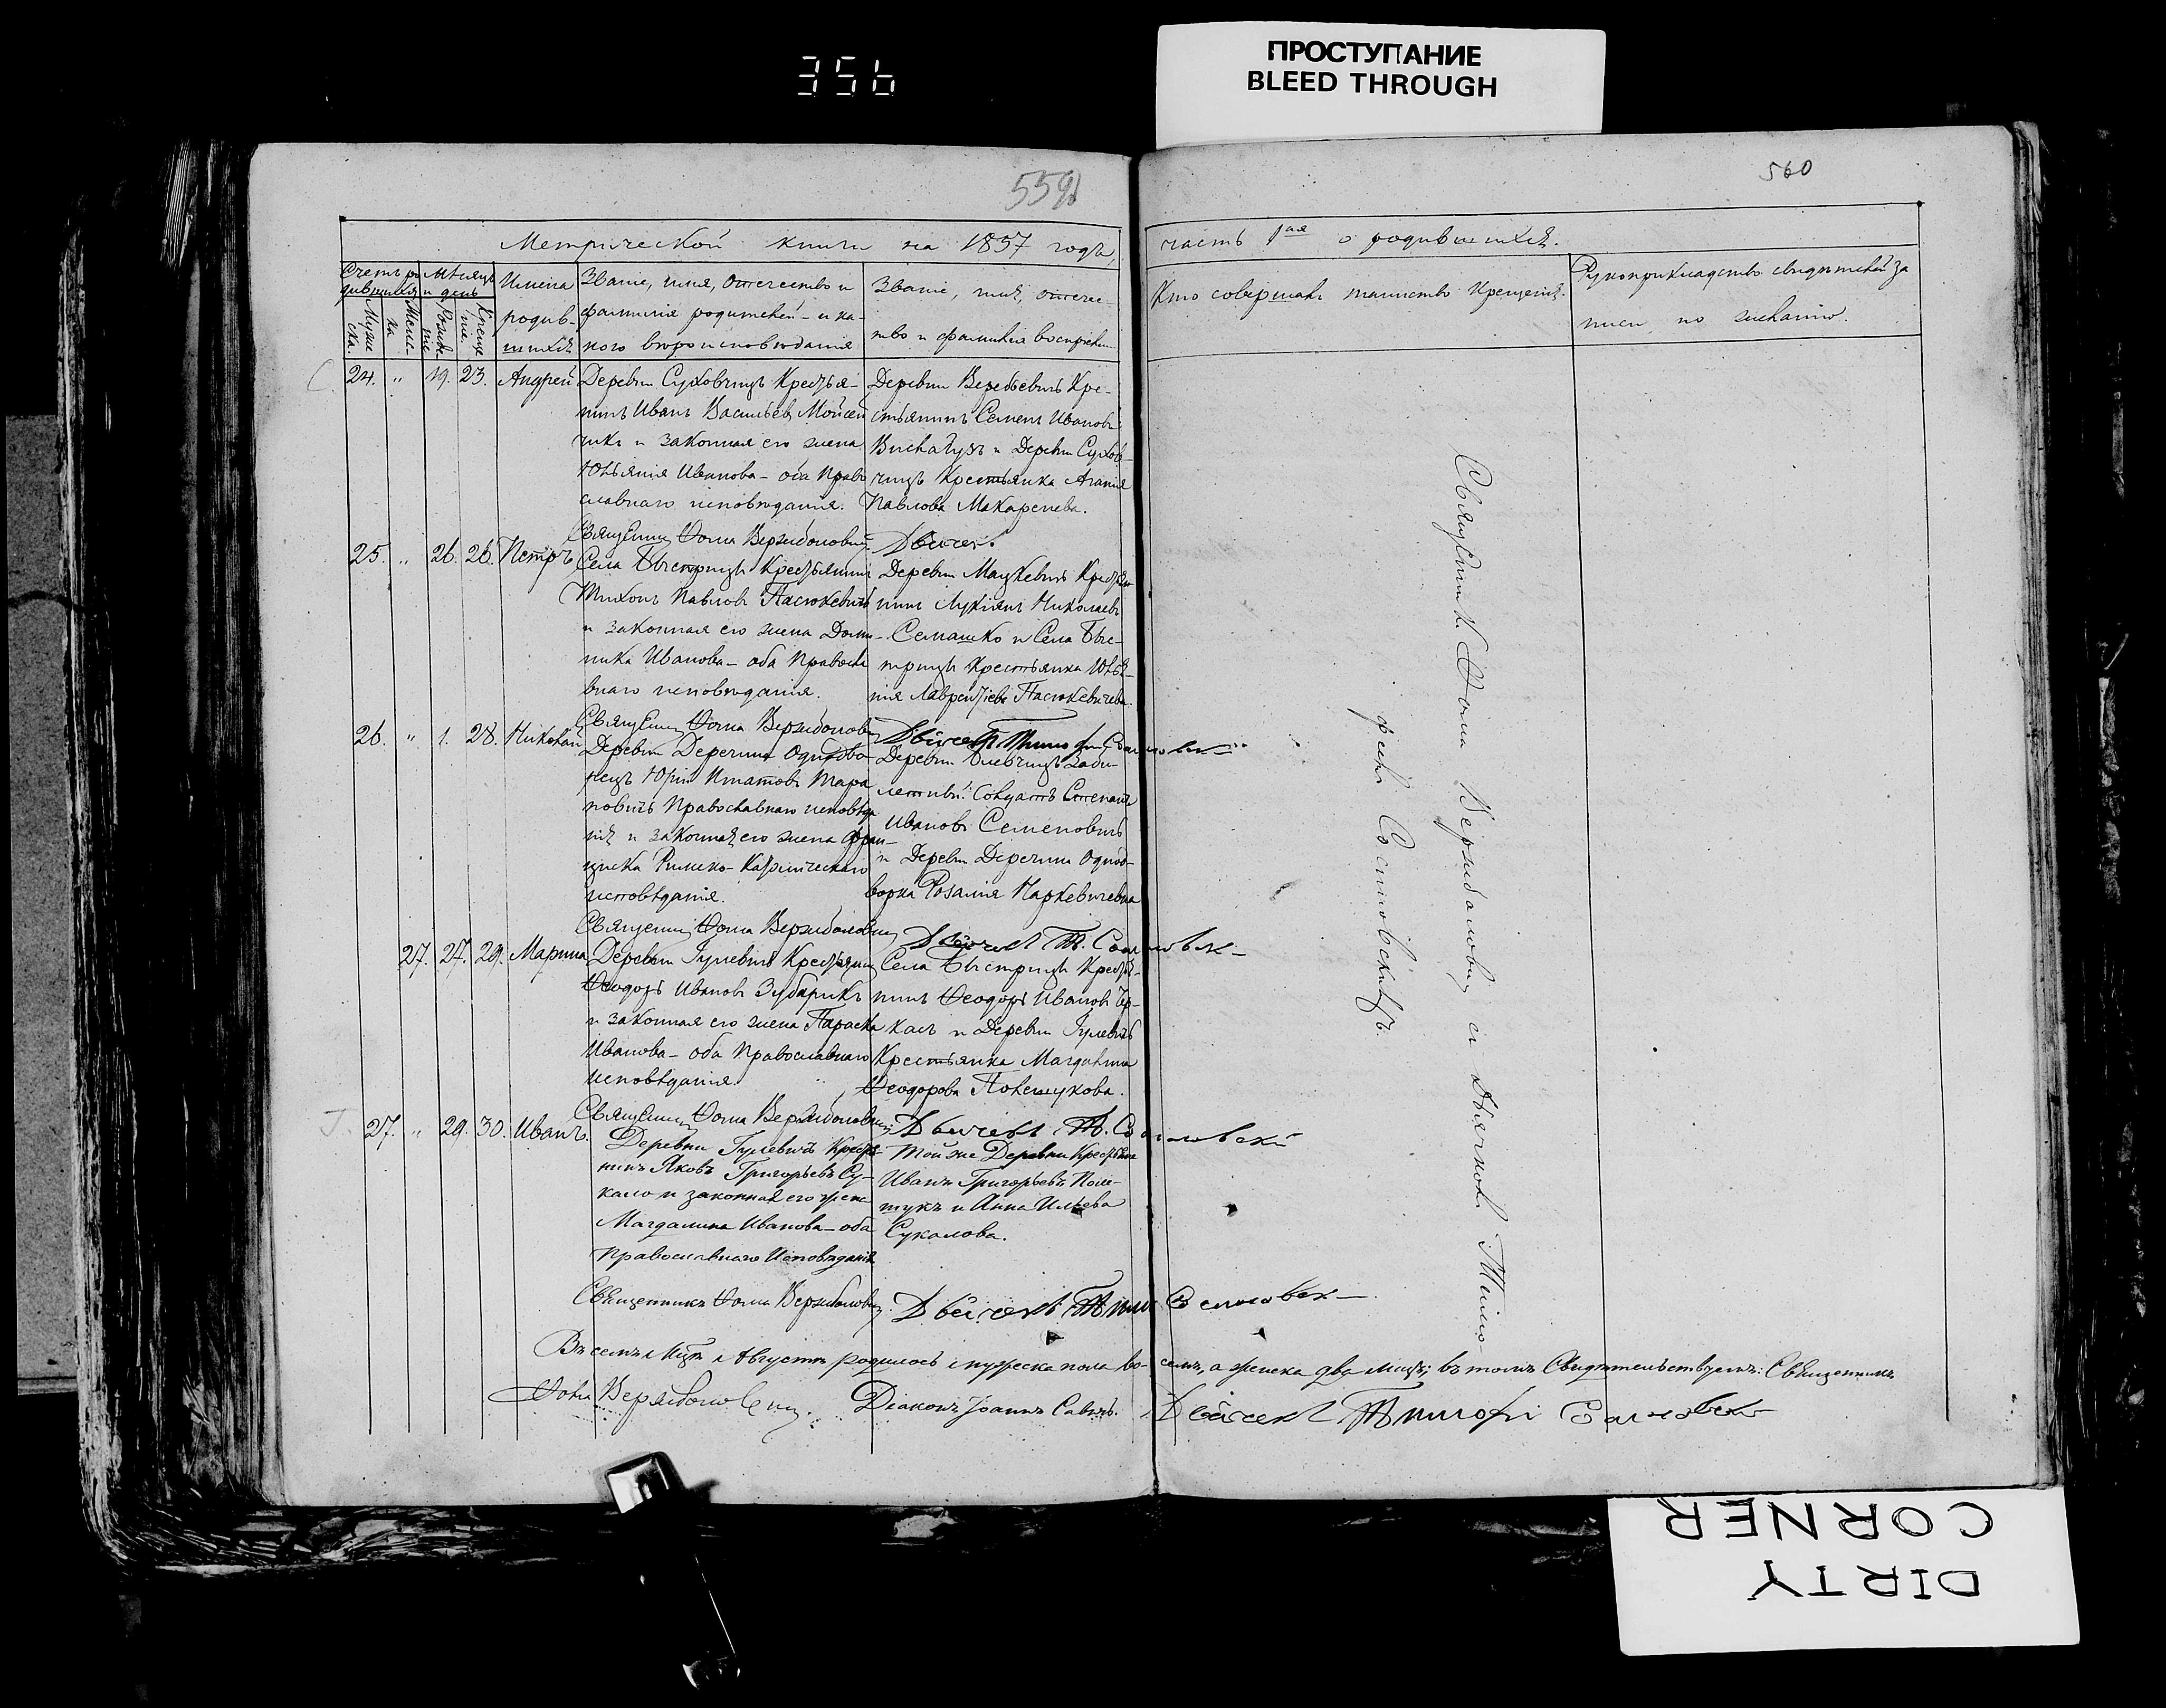 356
ПРОСТУПАНИЕ
BLEED THROUGH
559
560
Метрической книги на 1857 годъ
часть 1ая о родившихся.
Счетъ ро-
дившихся
Мужес-
ка.
Женс-
ка
Мѣсяцъ
и день
Рожде-
нія
Креще-
нія.
Имена
родив-
шихся
Званіе, имя, отечество и
фамилія родителей - и ка-
кого вѣроисповѣданія
Званіе, имя, отечес-
тво и фамилія воспріем.
Кто совершалъ таинство крещенія.
Рукоприкладство свидѣтелей за-
писи по желанію.
24. " 19. 23. Андрей
Деревни Суховчицъ Крестья-
нинъ Иванъ Васильевъ Мойсей
чикъ и законная его жена
Юльянія Иванова - оба Право
славнаго исповѣданія.
Деревни Веребьевичъ Кре-
стьянинъ Семенъ Ивановъ
и Деревни Сухов-
чицъ Крестьянка Агапія
Павлова Макаренева.
Священникъ Ѳома Вержболовичъ
Дьячекъ
25. " 26. 26. Петръ
Села Быстрицы Крестьянинъ
Тихонъ Павловъ Пасюкевичъ
и законная его жена Доми-
ника Иванова - оба Правосла
внаго исповѣданія.
Деревни Мацкевичъ Крестья
нинъ Лукіянъ Николаевъ
Семашко и Села Бы-
стрицы Крестьянка Юлья-
нія Лаврентіева Пасюкевичева.
Священникъ Ѳома Вержболовичъ
Дьячекъ Тимофей Сосновскій
26. " 1. 28. Николай
Деревни Деречина Однодво-
рецъ Юрій Игнатовъ Тара
новичъ Православнаго исповѣда
нія и законная его жена Фран-
циска Римско-Католическаго
исповѣданія.
Деревни
Солдатъ Степанъ
Ивановъ Семеновичъ
и Деревни Деречина Однод-
ворка Розалія Наркевичева
Священникъ Ѳома Вержболовичъ
Дьячекъ Т. Сосновск-
27. 27. 29. Марина
Деревни Гулевичъ Крестьянинъ
Ѳеодоръ Ивановъ Зубарикъ
и законная его жена Параска
Иванова - оба Православнаго
исповѣданія.
Села Быстрицы Крестья-
нинъ Ѳеодоръ Ивановъ
и Деревни Гулевичъ
Крестьянка Магдалина
Ѳеодорова Полещукова.
Священникъ Ѳома Вержболовичъ
Дьячекъ Т. Сосновскій
27. " 29. 30. Иванъ.
Деревни Гулевичъ Крестья
нинъ Яковъ Григорьевъ Су-
кало и законная его жена
Магдалина Иванова - оба
Православнаго Исповѣданія
Той же Деревни Крестьяне
Иванъ Григорьевъ Поле-
щукъ и Анна Ильева
Сукалова.
Священникъ Ѳома Вержболовичъ.
Дьячекъ Тимо Сосновск-
Священникъ Ѳома Вержболовичъ съ Дьячкомъ Тимо-
феемъ Сосновскимъ.
Въ семъ Мцѣ Августѣ родилось мужеска пола во- семь, а женска два лица; въ томъ Свидѣтельствуемъ: Священникъ
Ѳома Вержболовичъ. Діаконъ Іоаннъ Савичъ. Дьячекъ Тимофей Сосновскій
DIRTY
CORNER